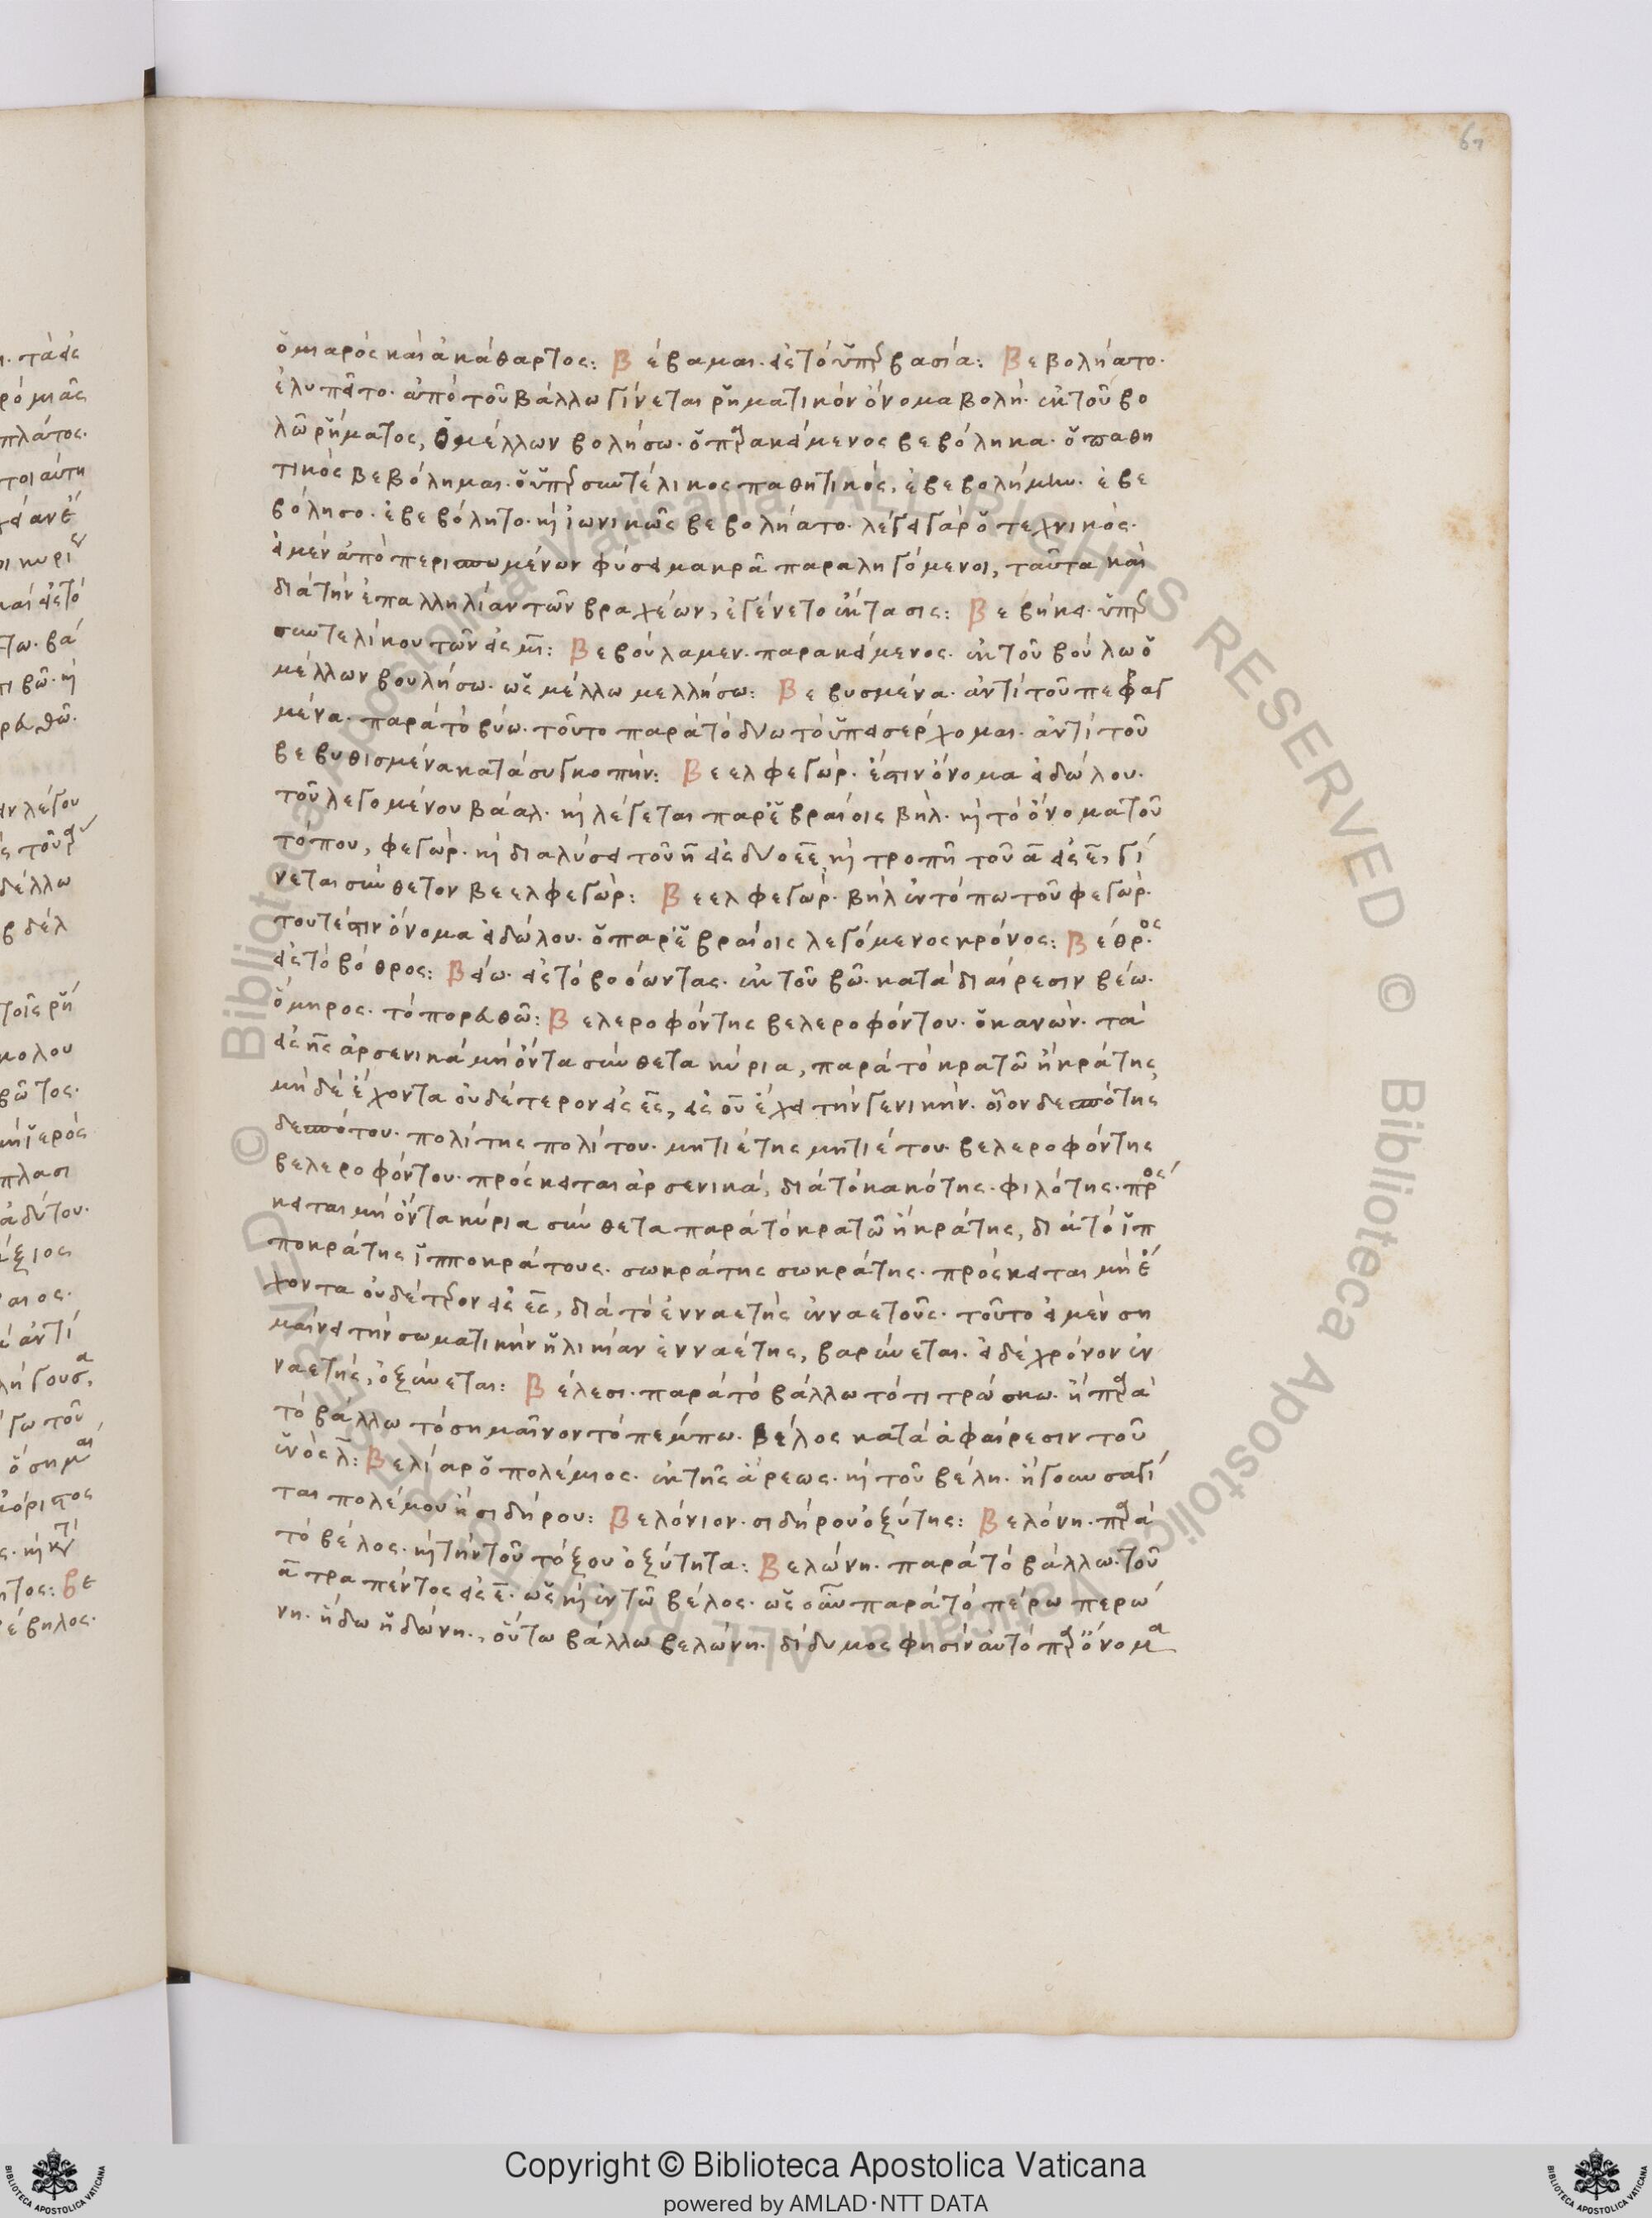 67
ὁ μιαρὸς καὶ ἀκάθαρτος: Βέβαμαι. εἰς τὸ ὑπερβασία: Βεβολήατο.
ἐλυπεῖτο. ἀπὸ τοῦ βάλλω γίνεται ῥηματικὸν ὄνομα βολή. ἐκ τοῦ βο
λῶ ῥήματος, ὁ μέλλων βολήσω. ὁ παρακείμενος βεβόληκα. ὁ παθη
τικὸς βεβόλημαι. ὁ ὑπερσυντέλικος παθητικὸς, ἐβεβολήμην. ἐβε
βόλησο. ἐβεβόλητο. καὶ ἰωνικῶς βεβολήατο. λέγει γὰρ ὁ τεχνικός.
εἰ μὲν ἀπὸ περισπωμένων φύσει μακρᾶ παραληγόμενοι, ταῦτα καὶ
διὰ τὴν ἐπαλληλίαν τῶν βραχέων, ἐγένετο ἔκτασις: Βεβήκει. ὑπερ
συντελίκου τῶν εἰς μι: Βεβούλαμεν. παρακείμενος. ἐκ τοῦ βούλω ὁ
μέλλων βουλήσω. ὡς μέλλω μελλήσω: Βεβυσμένα. ἀντὶ τοῦ πεφραγ
μένα. παρὰ τὸ βύω. τοῦτο παρὰ τὸ δύω τὸ ὑπεισέρχομαι. ἀντὶ τοῦ
βεβυθισμένα κατὰ συγκοπήν: Βεελφεγώρ. ἔστιν ὄνομα εἰδώλου.
τοῦ λεγομένου βάαλ. καὶ λέγεται παρ' ἑβραίοις βήλ. καὶ τὸ ὄνομα τοῦ
τόπου, φεγώρ. καὶ διαλύσει τοῦ η εἰς δύο εε καὶ τροπῆ τοῦ α εἰς ε, γί
νεται σύνθετον βεελφεγώρ: Βεελφεγώρ. βὴλ ἐν τόπω τοῦ φεγώρ.
τουτέστιν ὄνομα εἰδώλου. ὁ παρ' ἑβραίοις λεγόμενος κρόνος: Βέθρος.
εἰς τὸ βόθρος: Βείω. εἰς τὸ βοόωντας. ἐκ τοῦ βῶ. κατὰ διαίρεσιν βέω.
ὅμηρος. τὸ πορευθῶ: Βελεροφόντης βελεροφόντου. ὁ κανών. τὰ
εἰς ης ἀρσενικὰ μὴ ὄντα σύνθετα κύρια, παρὰ τὸ κρατῶ ἢ κράτης,
μὴ δὲ ἔχοντα οὐδέτερον εἰς ες, εἰς ου ἔχει τὴν γενικήν. οἷον δεσπότης
δεσπότου. πολίτης πολίτου. μητιέτης μητιέτου. βελεροφόντης
βελεροφόντου. πρόσκειται ἀρσενικά, διὰ τὸ κακότης. φιλότης. πρός
κειται μὴ ὄντα κύρια σύνθετα παρὰ τὸ κρατῶ ἢ κράτης, διὰ τὸ ἱπ
ποκράτης ἱπποκράτους. σωκράτης σωκράτης. πρόσκειται μὴ ἔ
χοντα οὐδέτερον εἰς ες, διὰ τὸ ἐνναετὴς ἐνναετοῦς. τοῦτο εἰ μὲν ση
μαίνει τὴν σωματικὴν ἡλικίαν ἐνναέτης, βαρύνεται. εἰ δὲ χρόνον ἐν
ναετής, ὀξύνεται: Βέλεσι. παρὰ τὸ βάλλω τὸ τιτρώσκω. ἢ παρὰ
τὸ βάλλω τὸ σημαῖνον τὸ πέμπω. βέλος κατὰ ἀφαίρεσιν τοῦ
ἑνὸς λ: Βελίαρ ὁ πολέμιος. ἐκ τῆς ἄρεως. καὶ τοῦ βέλη. ἤγουν σαγί
ται πολέμου ἢ σιδήρου: Βελόνιον. σιδήρου ὀξύτης: Βελόνη. παρὰ
τὸ βέλος. καὶ τὴν τοῦ τόξου ὀξύτητα: Βελώνη. παρὰ τὸ βάλλω. τοῦ
α τραπέντος εἰς ε. ὡς καὶ ἐν τῶ βέλος. ὡς οὖν παρὰ τὸ πέρω περώ
νη. ἥδω ἡδώνη, οὕτω βάλλω βελώνη. δίδυμος φησὶν αὐτὸ παρώνομα
Copyright © Biblioteca Apostolica Vaticana
powered by AMLAD·NTT DATA